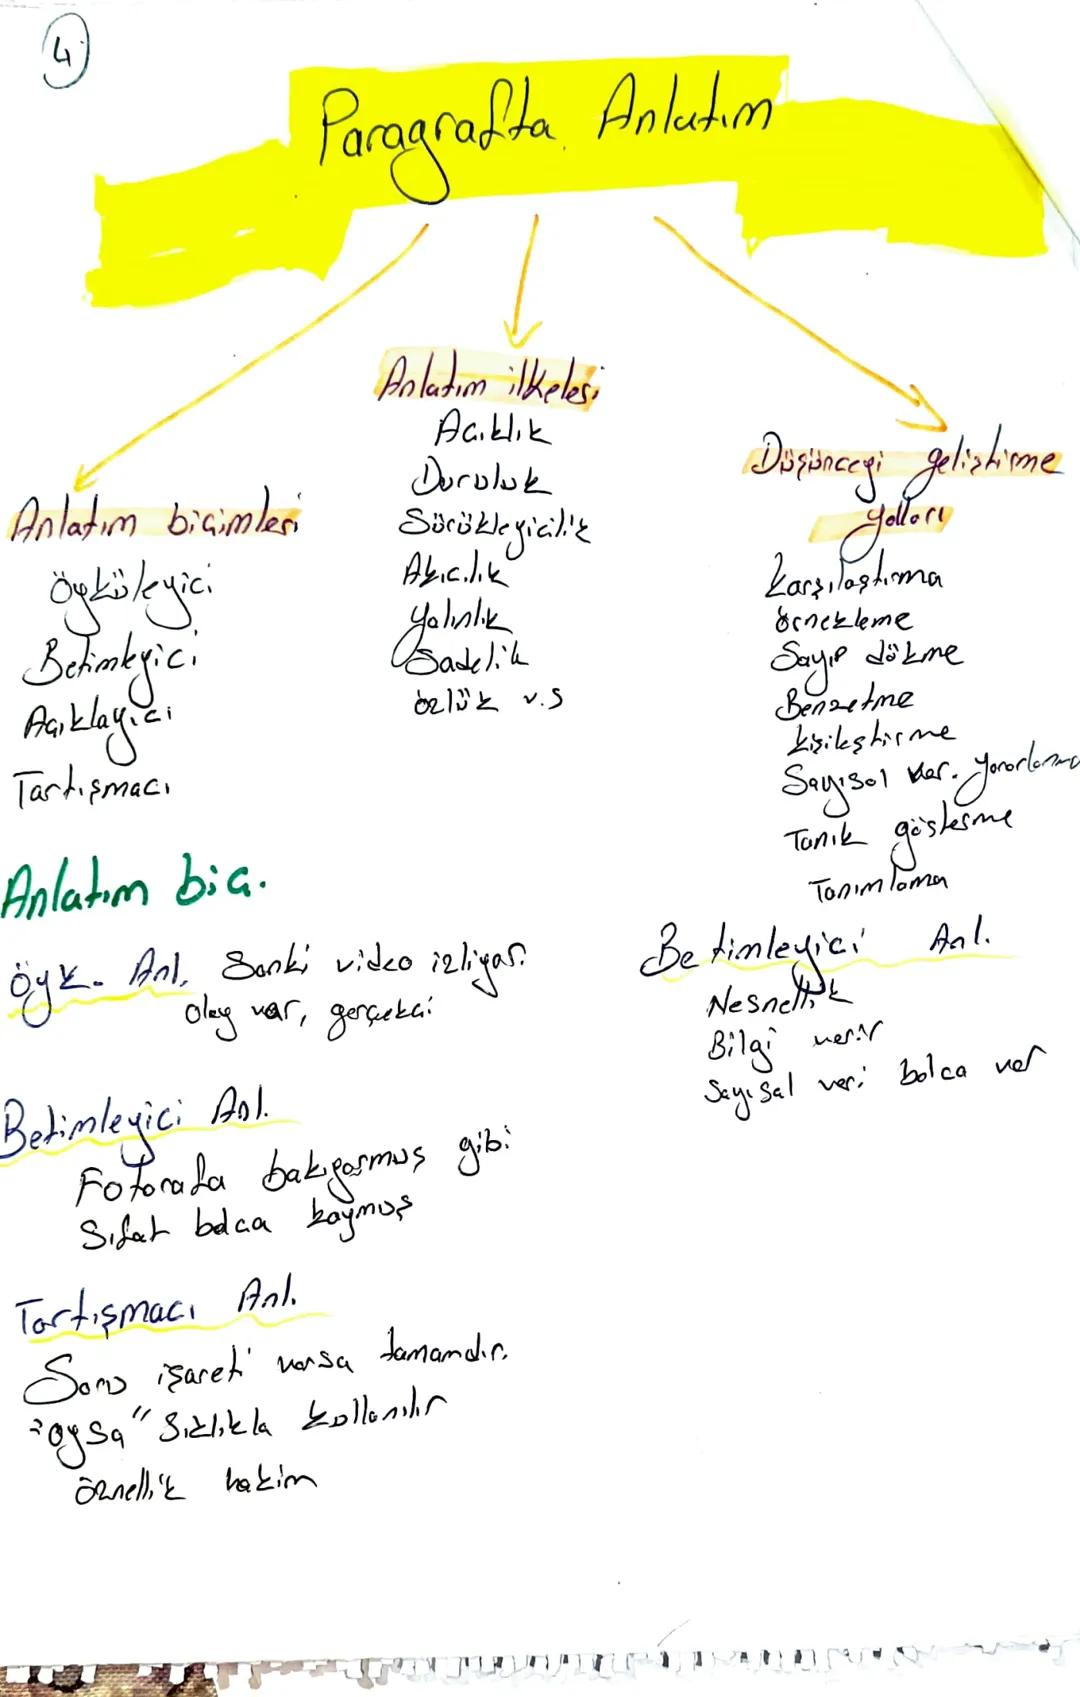 4
Paragrafta Anlatım
Anlatım biçimleri
Öyküleyici
Betimleyici
Açıklayıcı
Tartışmacı
Anlatım ilkeleri
Açıklık
Duruluk
Sürükleyicilik
Akıcılık
Yalınlık
Sadelik
özlük v.s
Düşünceyi geliştirme
yolları
Karşılaştırma
örnekleme
Sayıp dökme
Benzetme
kişileştirme
Sayısal ver. yararlanma
Tanık gösterme
Tanımlama
Anlatım biç.
Öyk. Anl. Sanki video izliyor.
olay var, gerçekçi
Betimleyici Anl.
Fotorafa bakıyormuş gibi
Sıfat bolca koymuş
Tartışmacı Anl.
Soru işareti varsa tamamdır.
"oysa" Sıklıkla kullanılır
öznellik hakim
Betimleyici Anl.
Nesnellik
Bilgi verir
Sayısal veri bolca var